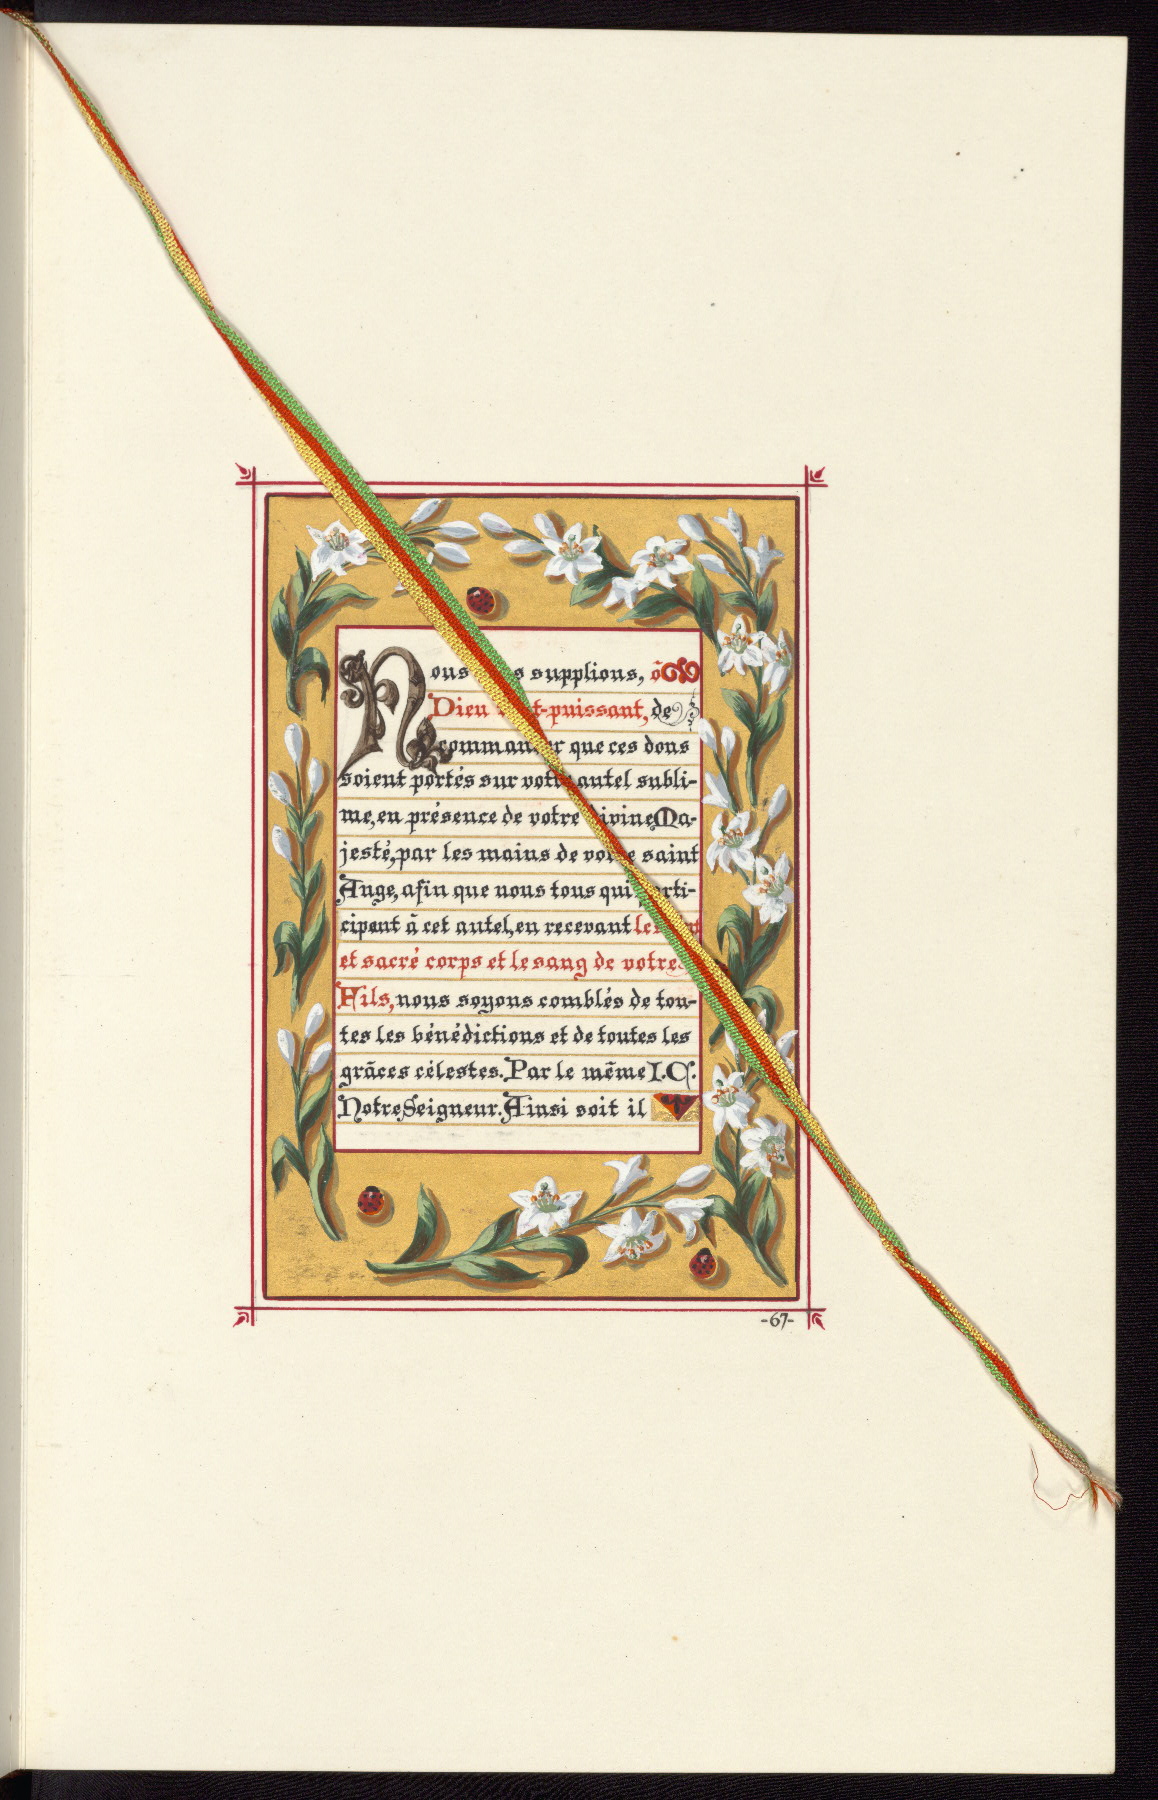 Nous s supplions, ô
Dieu t-puissant, de
commander que ces dons
soient portés sur votre autel subli-
me, en présence de votre divine Ma-
jesté, par les mains de votre saint
Ange, afin que nous tous qui parti-
cipant à cet autel, en recevant le
et sacré corps et le sang de votre
Fils, nous soyons comblés de tou-
tes les bénédictions et de toutes les
grâces célestes. Par le même I. C.
Notre Seigneur. Ainsi soit il
-67-